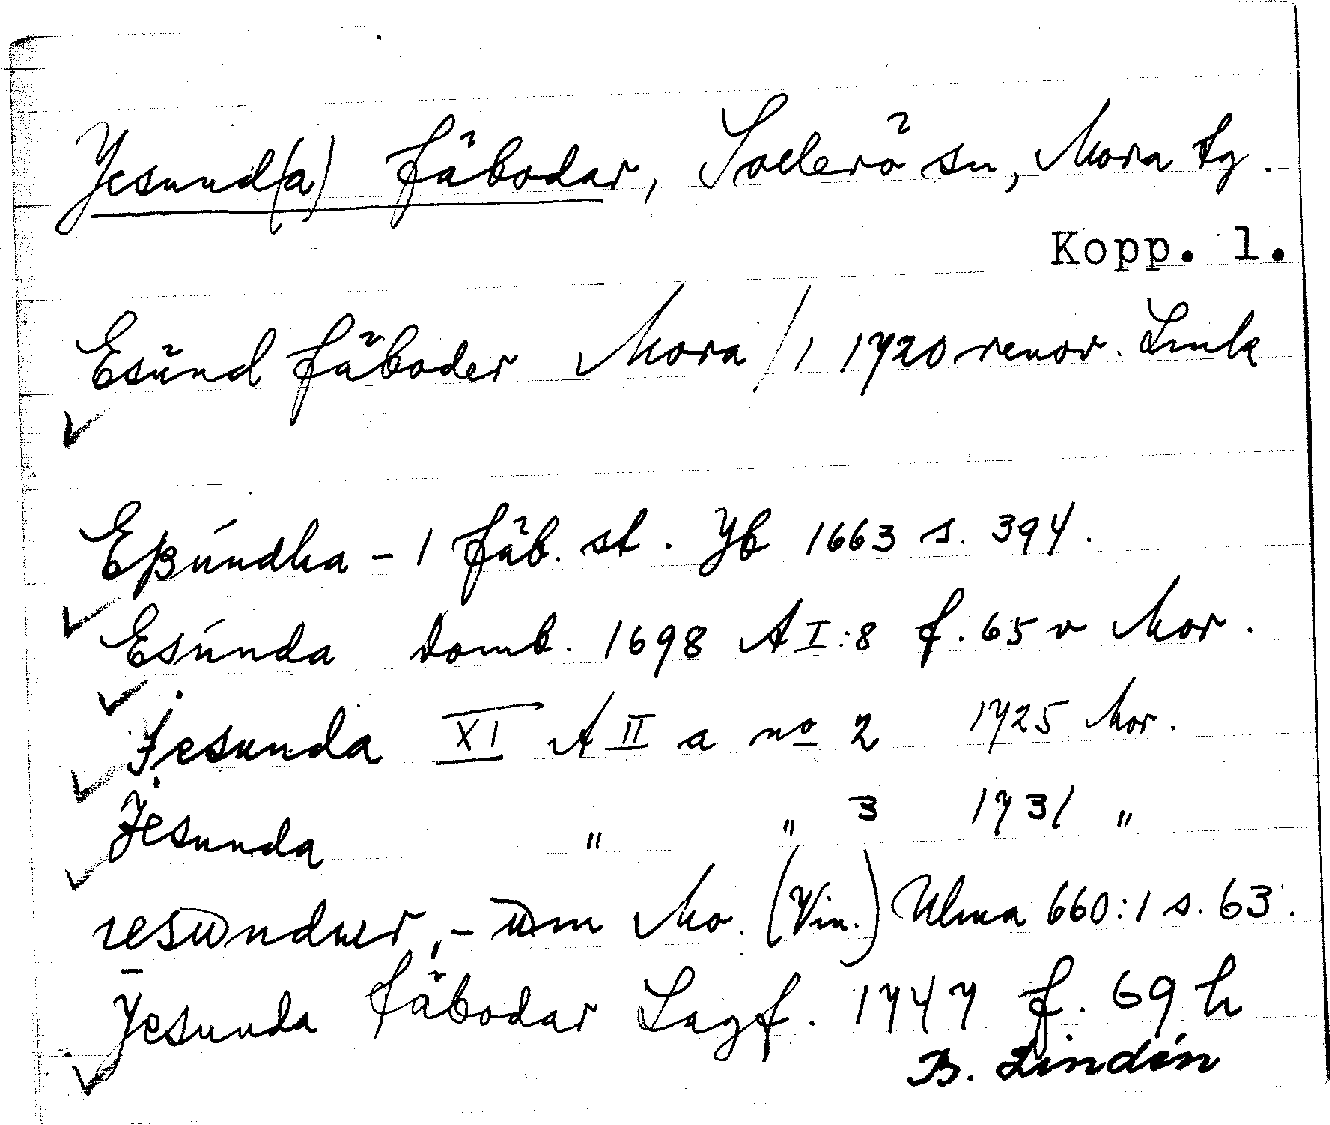 Yesund(a) fäbodar, Sollerö sn, Mora tg.
Kopp. 1.
Esŭnd fäboder Mora / 1 1720 renov.
Eßúndha - 1 fäb. st. Jb 1663 s. 394.
Esúnda Domb. 1698 A I:8 f. 65 v Mor.
Jesunda XI A II a no 2 1725 Mor.
Jesunda " " 3 1731 "
Mo. (Vin.) Ulma 660:1 s. 63.
Yesunda fäbodar Lagf. 1747 f. 69 h
B. Lindén